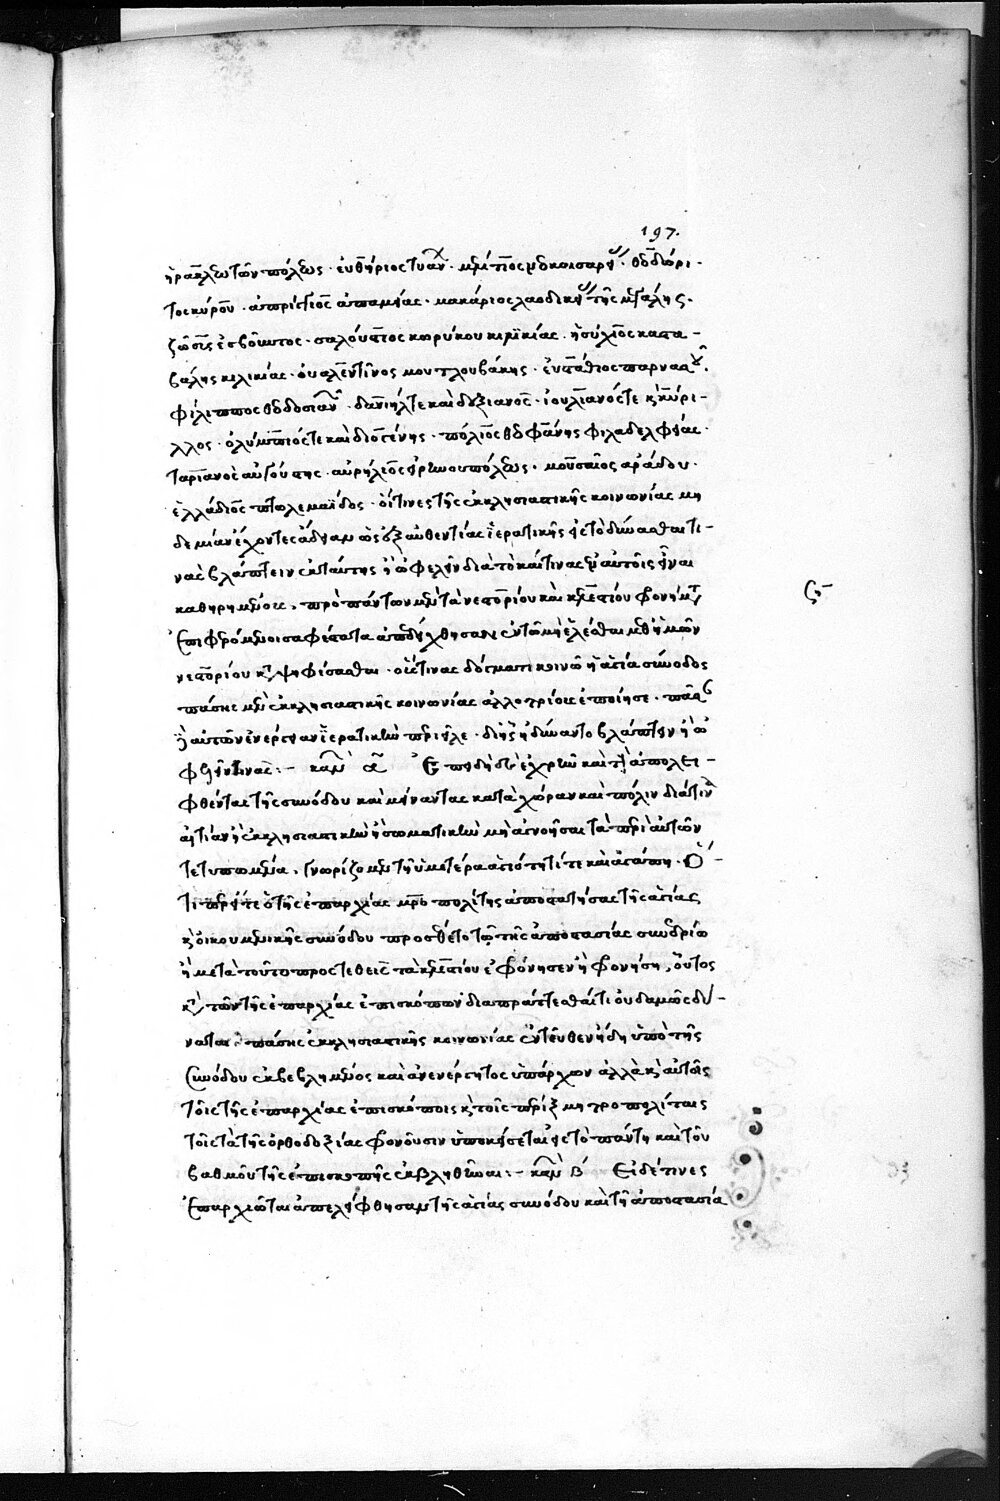 197.
ἡρακλεωτῶν πόλεως · εὐθήριος τυάν · πος καισαρ · θεοδώρι-
τος κύρου · ἀπρίγγιος ἀπαμείας · μακάριος λαοδικείας τῆς μεγάλης.
ζῶσις ἐσβοῦντος · σαλούστιος κωρύκου κιλικίας · ἡσύχιος καστα-
βάλης κιλικίας · οὐαλεντῖνος μουτλουβάκης · εὐστάθιος παρνασ
φίλιππος θεοδοσιαν · δανιήλ τε καὶ δεξιανός · ἰουλιανός τε κὶ κύρι-
λλος · ὀλύμπιός τε καὶ διογένης · πόλιος θεοφάνης φιλαδελφίας ·
ταριανὸς αὐγούστης · αὐρήλιος εἰρηνουπόλεως · μουσαῖος ἀράδου ·
ἑλλάδιος πτολεμαΐδος · οἵτινες τῆς ἐκκλησιαστικῆς κοινωνίας μη
δεμίαν ἔχοντες ἄδειαν ὡς ἐξ αὐθεντίας ἱερατικῆς εἰς τὸ δύνασθαί τι-
νας βλάπτειν ἐκ ταύτης ἢ ὠφελεῖν διὰ τὸ καί τινας ἐν αὐτοῖς εἶναι
καθῃρημένους, πρὸ πάντων μὲν τὰ νεστορίου καὶ κελεστίου φρονήματα
ἐπιφερόμενοι σαφέστατα ἀπεδείχθησαν ἐκ τοῦ μὴ ἑλέσθαι μεθ ἡμῶν
νεστορίου κατα ψηφίσασθαι · οὕστινας δόγματι κοινῷ ἡ ἁγία σύνοδος
πάσης μὲν ἐκκλησιαστικῆς κοινωνίας ἀλλοτρίους ἐποίησε · πᾶσαν
δὲ αὐτῶν ἐνέργειαν ἱερατικὴν περιεῖλε · δι ἧς ἠδύναντο βλάπτειν ἢ ὠ
φελεῖν τινας :- καν α Ἐπειδὴ δὲ ἐχρῆν καὶ τοὺς ἀπολει-
φθέντας τῆς συνόδου καὶ μείναντας κατὰ χώραν καὶ πόλιν διά τινα
αἰτίαν ἢ ἐκκλησιαστικὴν ἢ σωματικὴν μὴ ἀγνοῆσαι τὰ περὶ αὐτῶν
τετυπωμένα, γνωρίζομεν τῇ ὑμετέρα ἁγιότητί τε καὶ ἀγάπη · Ὅ-
τι περ εἴ τε ὁ τῆς ἐπαρχίας μητροπολίτης ἀποστατήσας τῆς ἁγίας
κὶ οἰκουμενικῆς συνόδου προσέθετο τῷ τῆς ἀποστασίας συνεδρίω
ἢ μετὰ τοῦτο προστεθείς τὰ κελεστίου ἐφρόνησεν ἢ φρονήσῃ, οὗτος
κατὰ τῶν τῆς ἐπαρχίας ἐπισκόπων διαπράττεσθαί τι οὐδαμῶς δύ-
ναται · πάσης ἐκκλησιαστικῆς κοινωνίας ἐντεῦθεν ἤδη ὑπὸ τῆς
συνόδου ἐκβεβλημένος καὶ ἀνενέργητος ὑπάρχων ἀλλὰ κὶ αὐτοῖς
τοῖς τῆς ἐπαρχίας ἐπισκόποις κὶ τοῖς πέριξ μητροπολίταις
τοῖς τὰ τῆς ὀρθοδοξίας φρονοῦσιν ὑποκείσεται εἰς τὸ πάντη καὶ τοῦ
βαθμοῦ τῆς ἐπισκοπῆς ἐκβληθῆναι :- καν β Εἰ δέ τινες
ἐπαρχιῶται ἀπελείφθησαν τῆς ἁγίας συνόδου καὶ τῇ ἀποστασία